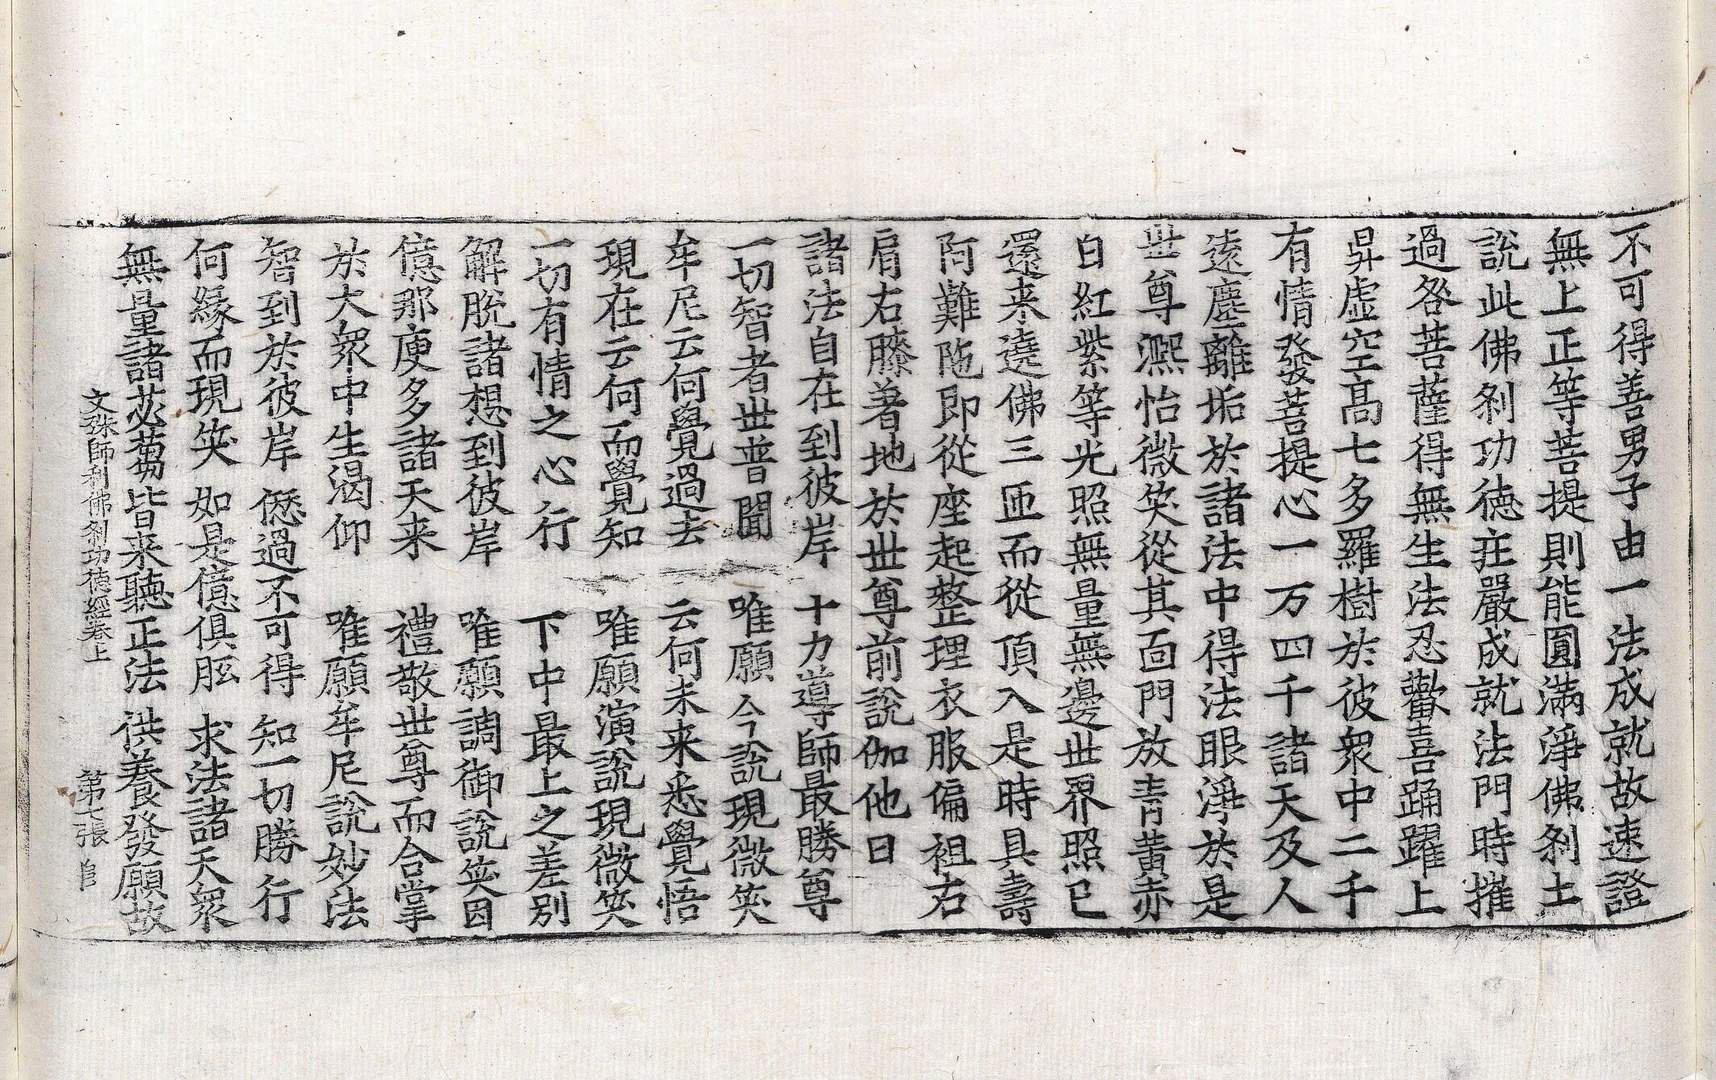 不可得善男子由一法成就故速證
無上正等菩提則能圓滿淨佛刹土
說此佛刹功德莊嚴成就法門時摧
過咎菩薩得無生法忍歡喜踊躍上
昇虛空高七多羅樹於彼衆中二千
有情發菩提心一万四千諸天及人
遠塵離垢於諸法中得法眼淨於是
世尊凞怡微笑從其面門放青黃赤
白紅紫等光照無量無邊世界照已
還来遶佛三匝而從頂入是時具壽
阿難陁即從座起整理衣服偏袒右
肩右膝著地於世尊前說伽他曰
諸法自在到彼岸 十力導師最勝尊
一切智者世普聞 唯願今說現微笑
牟尼云何覺過去 云何未来悉覺悟
現在云何而覺知 唯願演說現微笑
一切有情之心行 下中最上之差別
解脫諸想到彼岸 唯願調御說笑因
億那庾多諸天来 禮敬世尊而合掌
於大衆中生渴仰 唯願牟尼說妙法
智到於彼岸 愆過不可得 知一切勝行
何緣而現笑 如是億俱胝 求法諸天衆
無量諸苾蒭 皆来聽正法 供養發願故
文殊師利佛刹功德經卷上 第七張